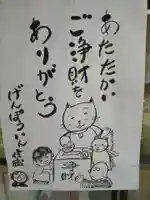 あたたかい
ご浄財を
ありがとう
げんぽういん
浄財